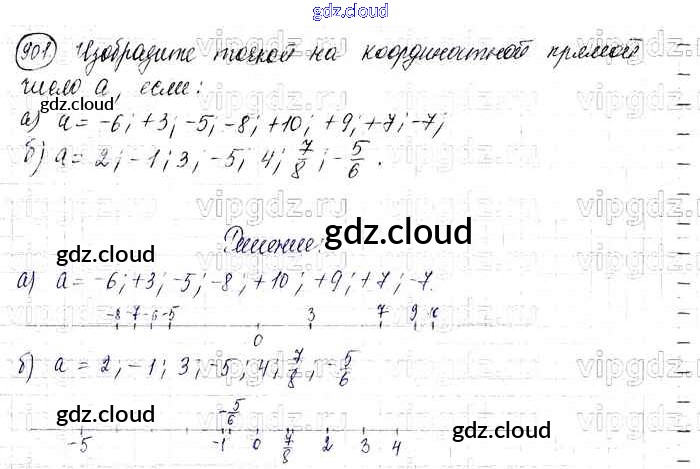 gdz.cloud
901 Изобразите точкой на координатной прямой
число a, если:
gdz.cloud
vipgdz.ru vipgdz.ru vipgdz.ru
а) a = -6; +3; -5; -8; +10; +9; +7; -7;
б) a = 2; -1; 3; -5; 4; 7/8; -5/6.
vipgdz.ru vipgdz.ru vipgdz.ru
Решение:
gdz.cloud gdz.cloud
а) a = -6; +3; -5; -8; +10; +9; +7; -7.
-8 -7 -6 -5 0 3 7 9 10
б) a = 2; -1; 3; -5; 4; 7/8; -5/6
gdz.cloud
-5/6
-5 -1 0 7/8 2 3 4
gdz.cloud